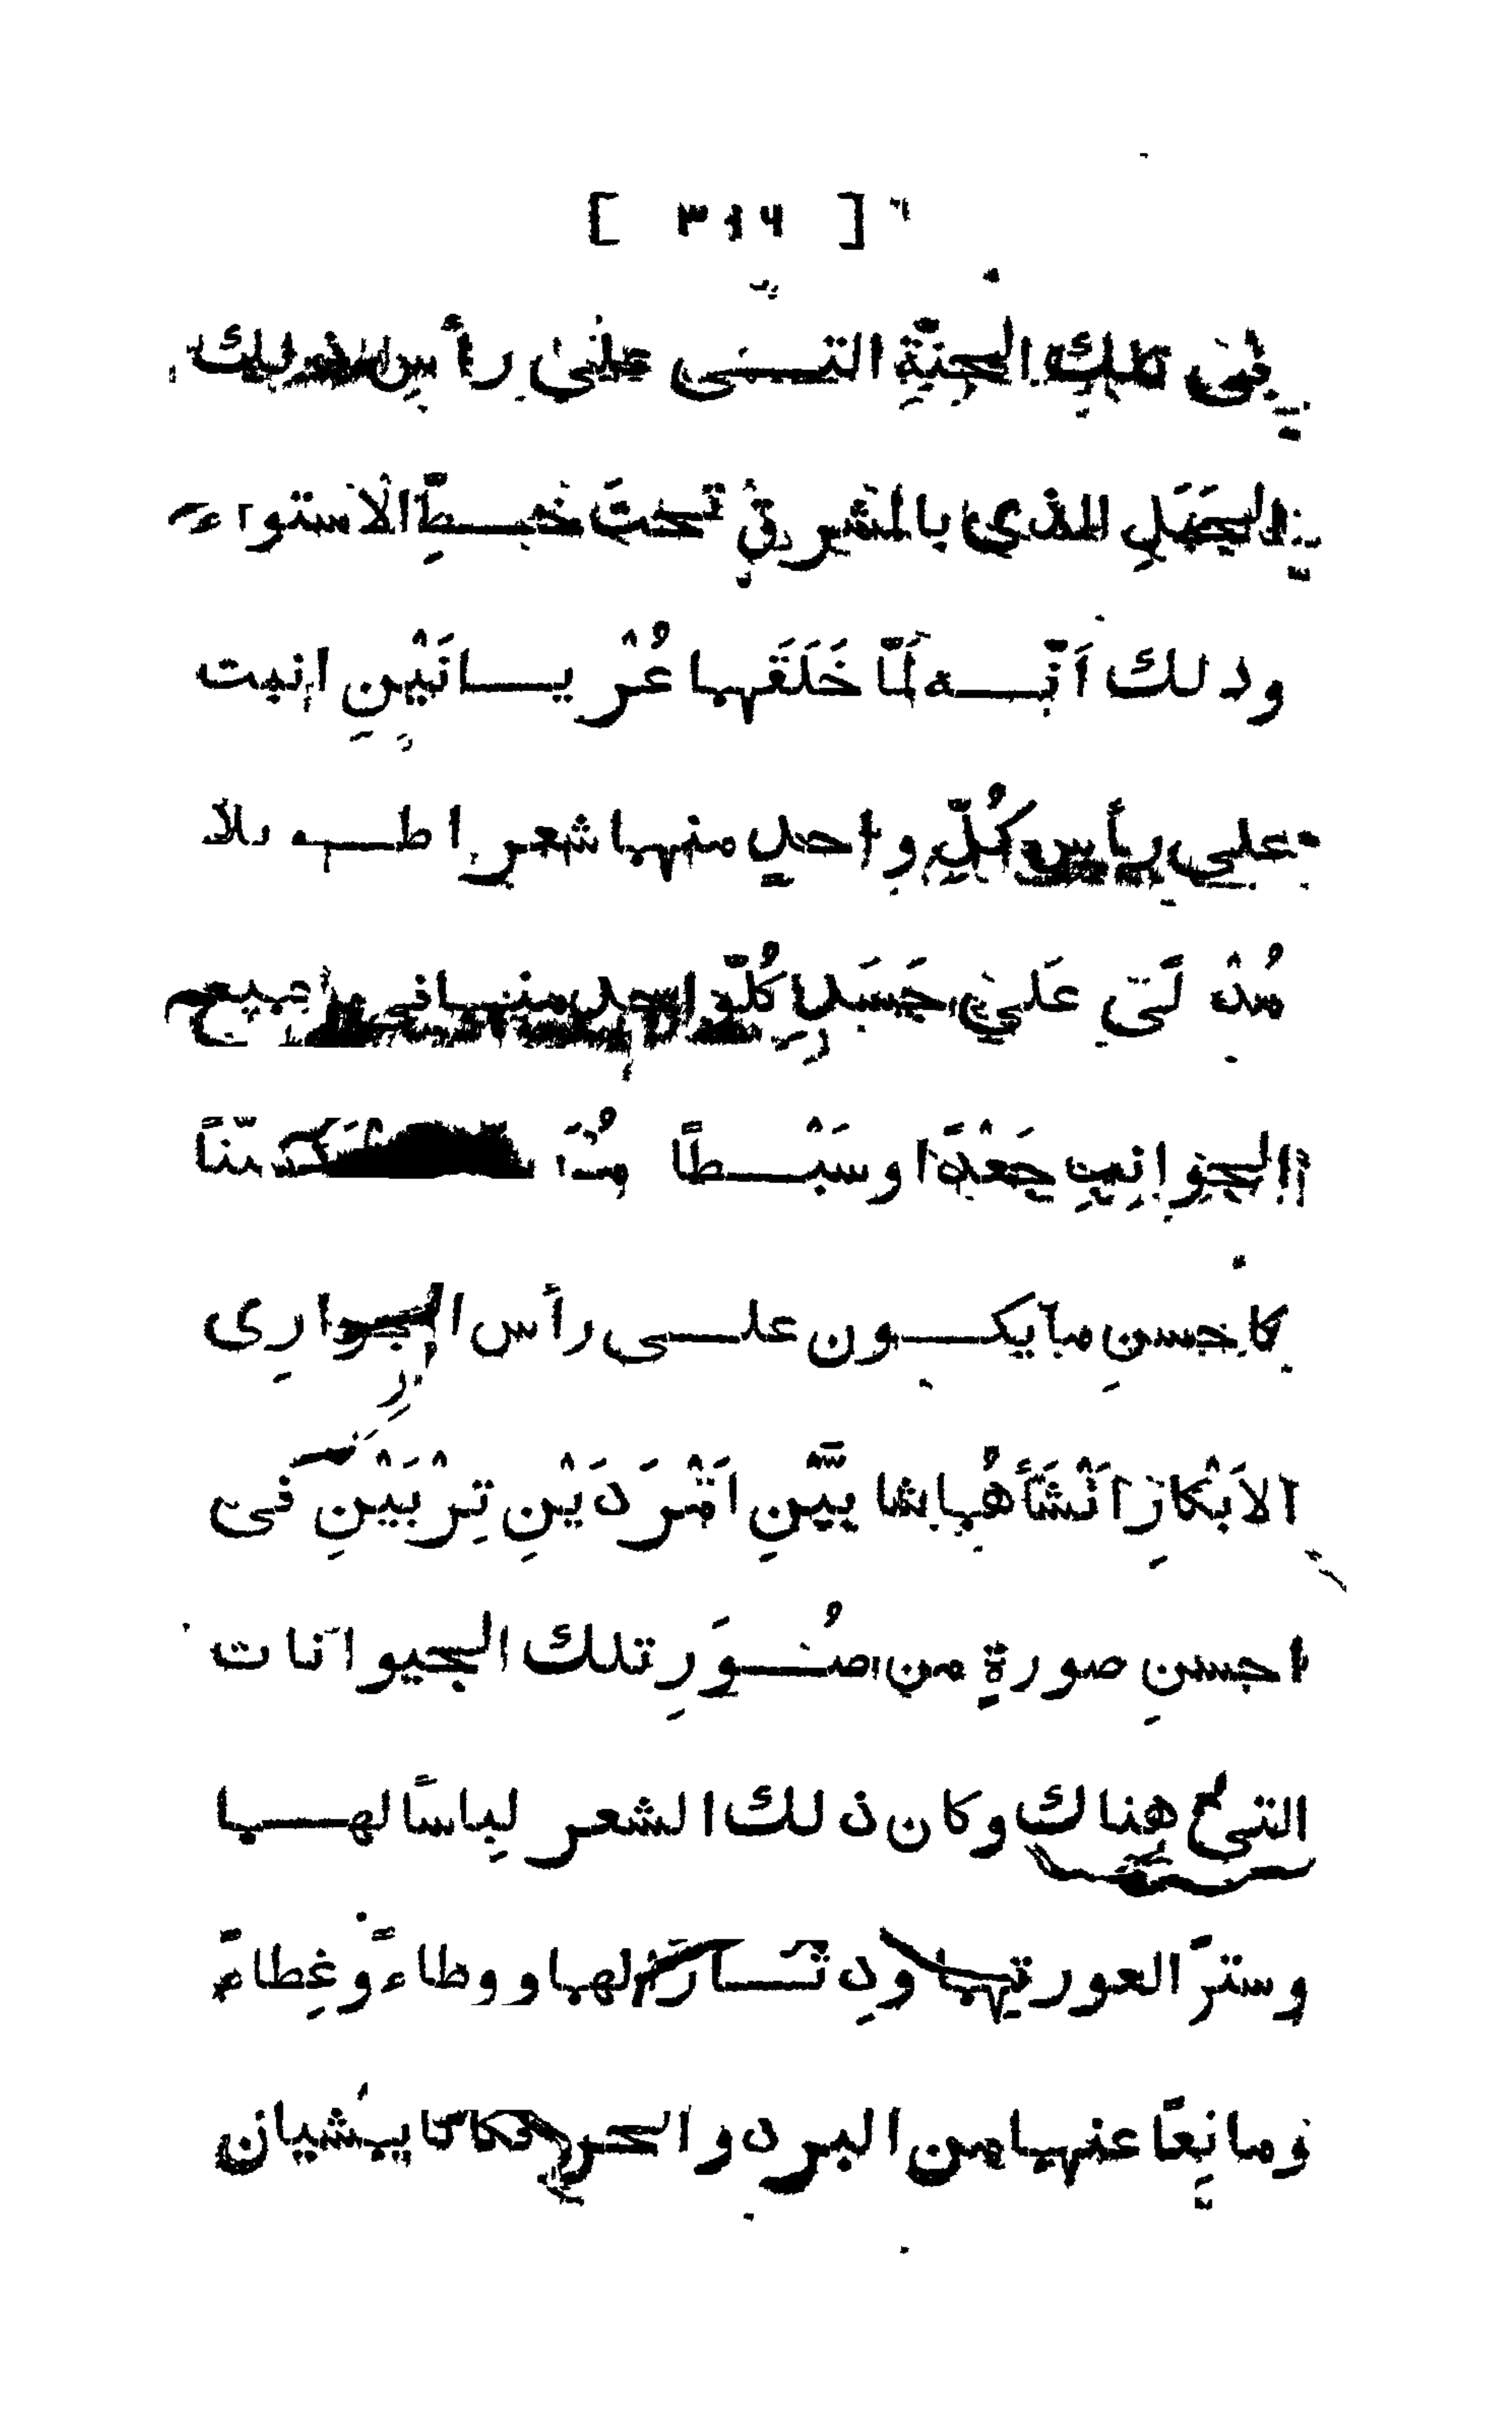 [ ٣١٦ ]
فى تلك الجنّةِ التى على رأسِ ذلك
الجَبَلِ الذى بالمشرقِ تحتَ خطِّ الاستواء
وذلك اَنّه لَمّا خَلَقَهما عُرْيانَيْنِ انبت
على رأسِ كُلِّ واحدٍ منهما شعرا طويلا
مُدْلًى عَلىٰ جَسَدِ كُلّ واحد منهما فى جميع
الجوانبِ جَعْدًا وسَبْطاً
كاحسنِ مايكون على رأس الجوارِى
الاَبْكارِ اَنْشَأَهُما شابَّيْنِ اَمْرَدَيْنِ تِرْبَيْنِ فى
احسنِ صورةٍ من صُوَرِ تلك الحيوانات
التى هناك وكان ذلك الشعر لِباسًا لهما
وسترًا لعورتهما ودِثارًا لهما ووطاءً وغِطاءً
ومانِعًا عنهما من البرد والحر فكانا يمشيان